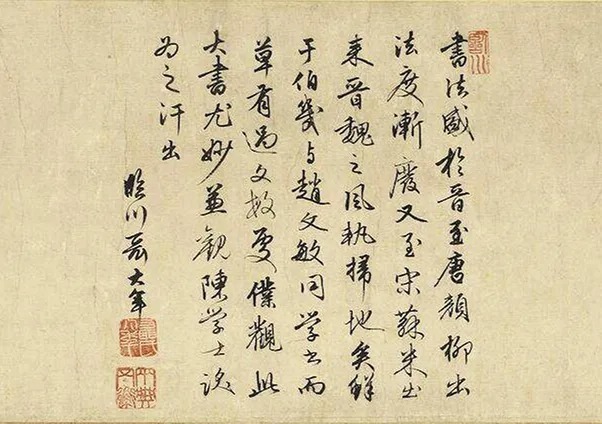 書法盛於晉至唐顏柳出
法度漸廢又至宋蘇米出
来晉魏之風執掃地矣鮮
于伯幾与趙文敏同学书而
草有過文敏處僕觀此
大書尤妙並觀陳学士跋
为之汗出
臨川聶大年